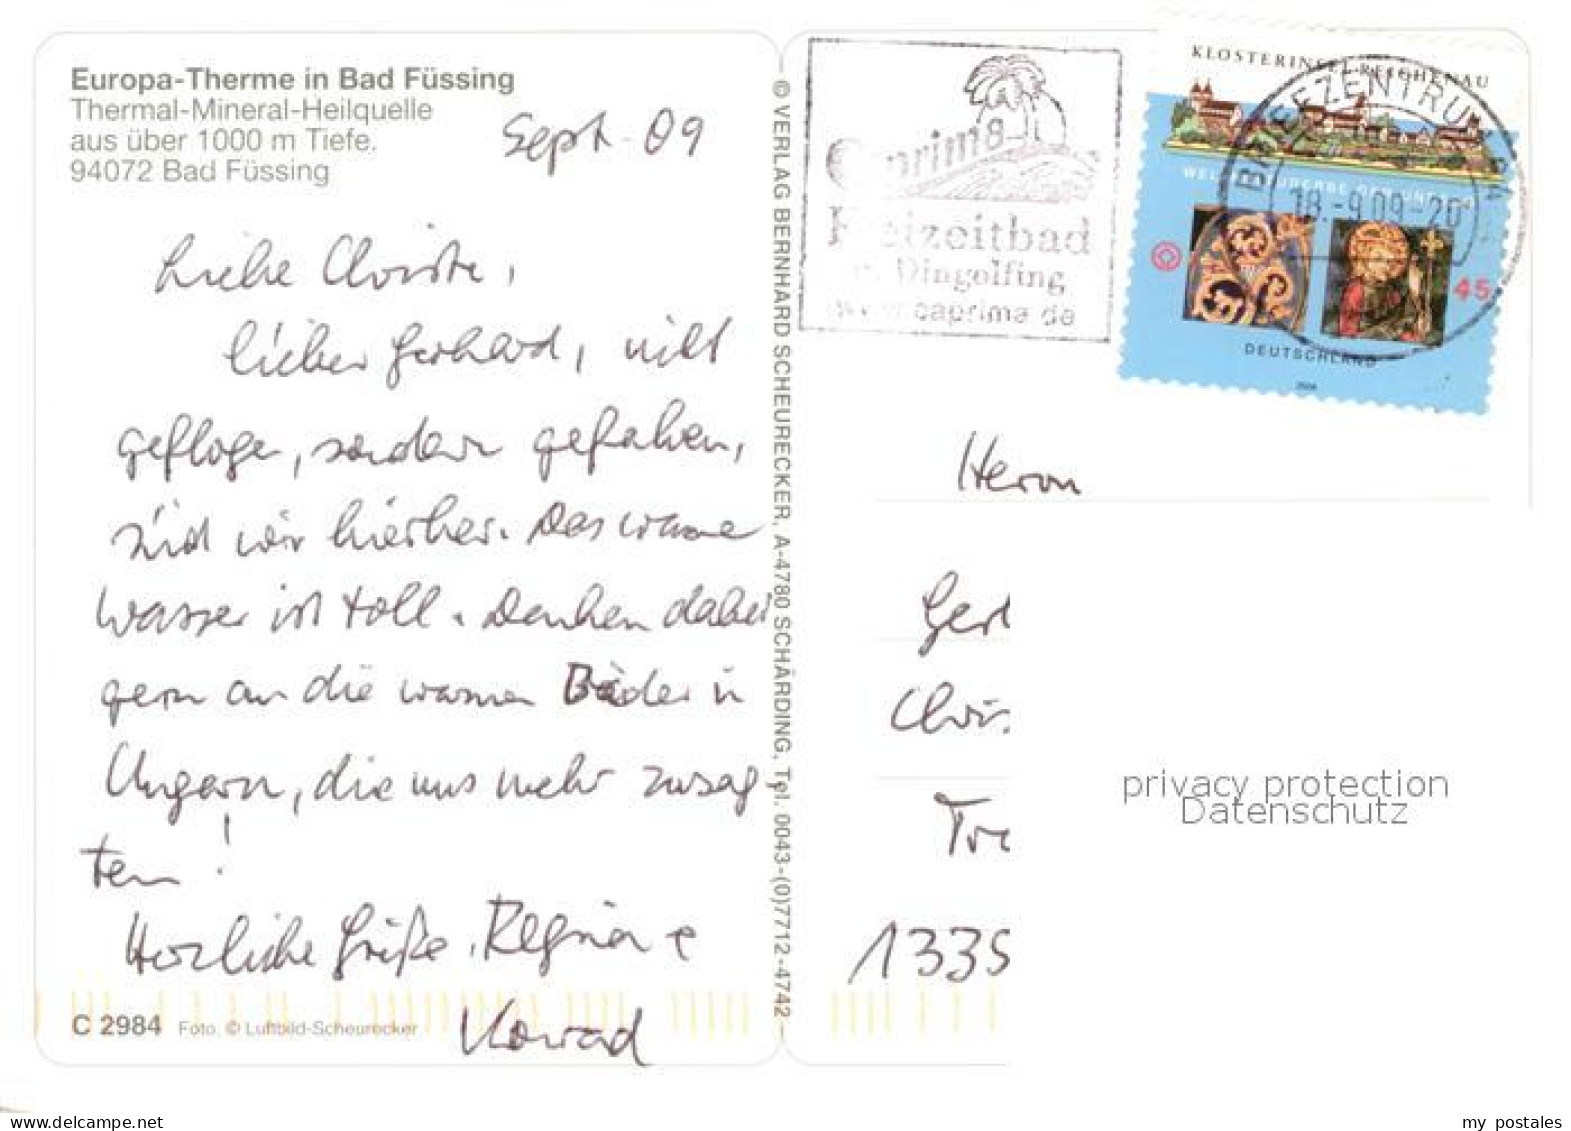 Europa-Therme in Bad Füssing
Thermal-Mineral-Heilquelle
aus über 1000 m Tiefe.
94072 Bad Füssing
Sept. 09
Liebe Christa,
lieber Gerhard, nicht
geflogen, sondern gefahren,
sind wir hierher. Das warme
Wasser ist toll. Denken dabei
gern an die warmen Bäder in
Ungarn, die uns mehr zusag-
ten!
Herzliche Grüße, Regina +
Konrad
C 2984 Foto. © Luftbild-Scheurecker
© VERLAG BERNHARD SCHEURECKER, A-4780 SCHÄRDING, Tel. 0043-(0)7712-4742
Caprima
Freizeitbad
in Dingolfing
www.caprima.de
KLOSTERINSEL REICHENAU
WELTKULTURERBE DER UNESCO
45
DEUTSCHLAND
BRIEFZENTRUM 94
18.-9.09-20
Herrn
Ger
Chris
Tre
1335
privacy protection
Datenschutz
www.delcampe.net
my_postales